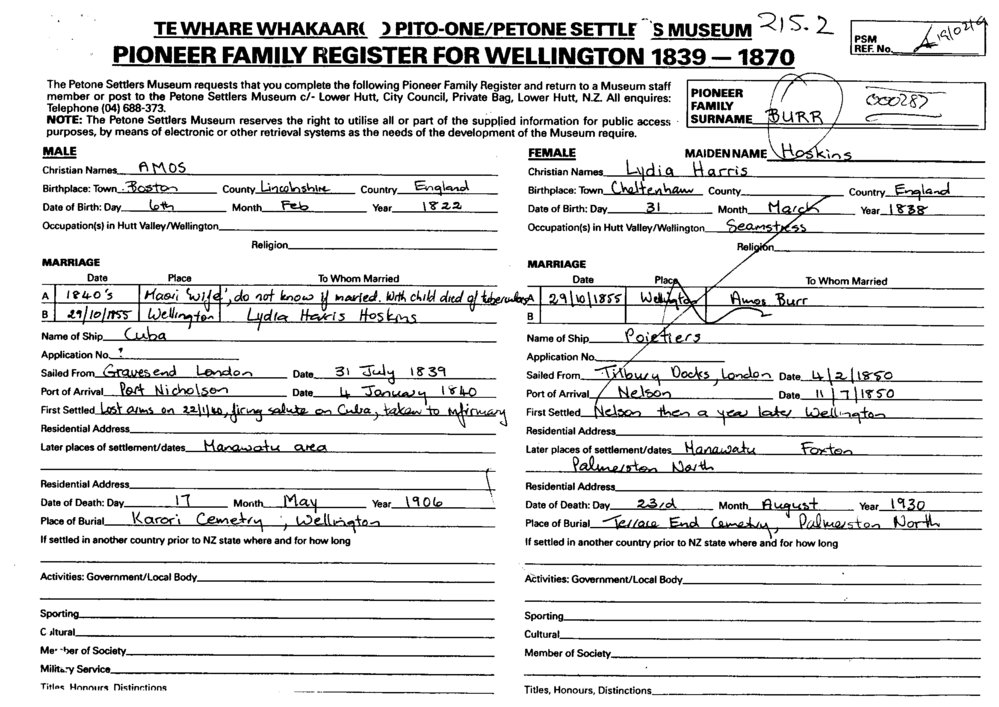 TE WHARE WHAKAAR( ) PITO-ONE/PETONE SETTLE S MUSEUM 215.2
PSM REF. No.
PIONEER FAMILY REGISTER FOR WELLINGTON 1839 — 1870
The Petone Settlers Museum requests that you complete the following Pioneer Family Register and return to a Museum staff
member or post to the Petone Settlers Museum c/- Lower Hutt, City Council, Private Bag, Lower Hutt, N.Z. All enquires:
Telephone (04) 688-373.
NOTE: The Petone Settlers Museum reserves the right to utilise all or part of the supplied information for public access
purposes, by means of electronic or other retrieval systems as the needs of the development of the Museum require.
PIONEER
FAMILY
SURNAME BURR
000287
MALE
Christian Names AMOS
Birthplace: Town Boston County Lincolnshire Country England
Date of Birth: Day 6th Month Feb Year 1822
Occupation(s) in Hutt Valley/Wellington
Religion
MARRIAGE
Date Place To Whom Married
A 1840's Maori 'wife', do not know if married. With child died of tuberculosis
B 29/10/1855 Wellington Lydia Harris Hoskins
Name of Ship Cuba
Application No. ?
Sailed From Gravesend London Date 31 July 1839
Port of Arrival Port Nicholson Date 4 January 1840
First Settled Lost arms on 22/1/40, firing salute on Cuba, taken to infirmary
Residential Address
Later places of settlement/dates Manawatu area
Residential Address
Date of Death: Day 17 Month May Year 1906
Place of Burial Karori Cemetry, Wellington
If settled in another country prior to NZ state where and for how long
Activities: Government/Local Body
Sporting
C ltural
Me ber of Society
Military Service
Titles, Honours, Distinctions
FEMALE MAIDEN NAME Hoskins
Christian Names Lydia Harris
Birthplace: Town Cheltenham County Country England
Date of Birth: Day 31 Month March Year 1838
Occupation(s) in Hutt Valley/Wellington Seamstress
Religion
MARRIAGE
Date Place To Whom Married
A 29/10/1855 Wellington Amos Burr
B
Name of Ship Poietiers
Application No.
Sailed From Tilbury Docks, London Date 4/2/1850
Port of Arrival Nelson Date 11/7/1850
First Settled Nelson then a year later Wellington
Residential Address
Later places of settlement/dates Manawatu Foxton
Palmerston North
Residential Address
Date of Death: Day 23rd Month August Year 1930
Place of Burial Terrace End Cemetry, Palmerston North
If settled in another country prior to NZ state where and for how long
Activities: Government/Local Body
Sporting
Cultural
Member of Society
Titles, Honours, Distinctions